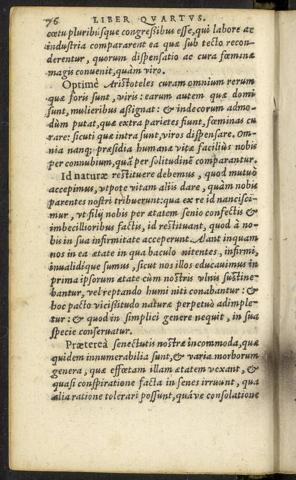 76 LIBER QVARTVS.
cœtu pluribusque congreßibus esse, qui labore ac
industria compararent ea quæ sub tecto recon-
derentur, quorum dispensatio ac cura fœminæ
magis conuenit, quàm viro.
Optimè Aristoteles curam omnium rerum
quæ foris sunt, viris: earum autem quæ domi
sunt, mulieribus aßignat: & indecorum admo-
dùm putat, quæ extra parietes fiunt, fœminas cu
rare: sicuti quæ intra sunt, viros dispensare. Om-
nia nanq; præsidia humanæ vitæ faciliùs nobis
per connubium, quâ per solitudinẽ comparantur.
Id naturæ restituere debemus, quod mutuò
accepimus, vtpote vitam aliis dare, quam nobis
parentes nostri tribuerunt: qua ex re id nancisci-
mur, vt filij nobis per ætatem senio confectis &
imbecillioribus factis, id restituant, quod à no-
bis in sua infirmitate acceperunt. Alant inquam
nos in ea ætate in qua baculo nitentes, infirmi,
inualidique sumus, sicut nos illos educauimus in
prima ipsorum ætate cùm nostris vlnis sustine-
bantur, vel reptando humi niti conabantur: &
hoc pacto vicißitudo naturæ perpetuò adimple-
tur: & quod in simplici genere nequit, in sua
specie conseruatur.
Prætereà senectutis nostræ incommoda, quæ
quidem innumerabilia sunt, & varia morborum
genera, quæ effœtam illam ætatem vexant, &
quasi conspiratione facta in senes irruunt, qua
alia ratione tolerari possunt, quáve consolatione